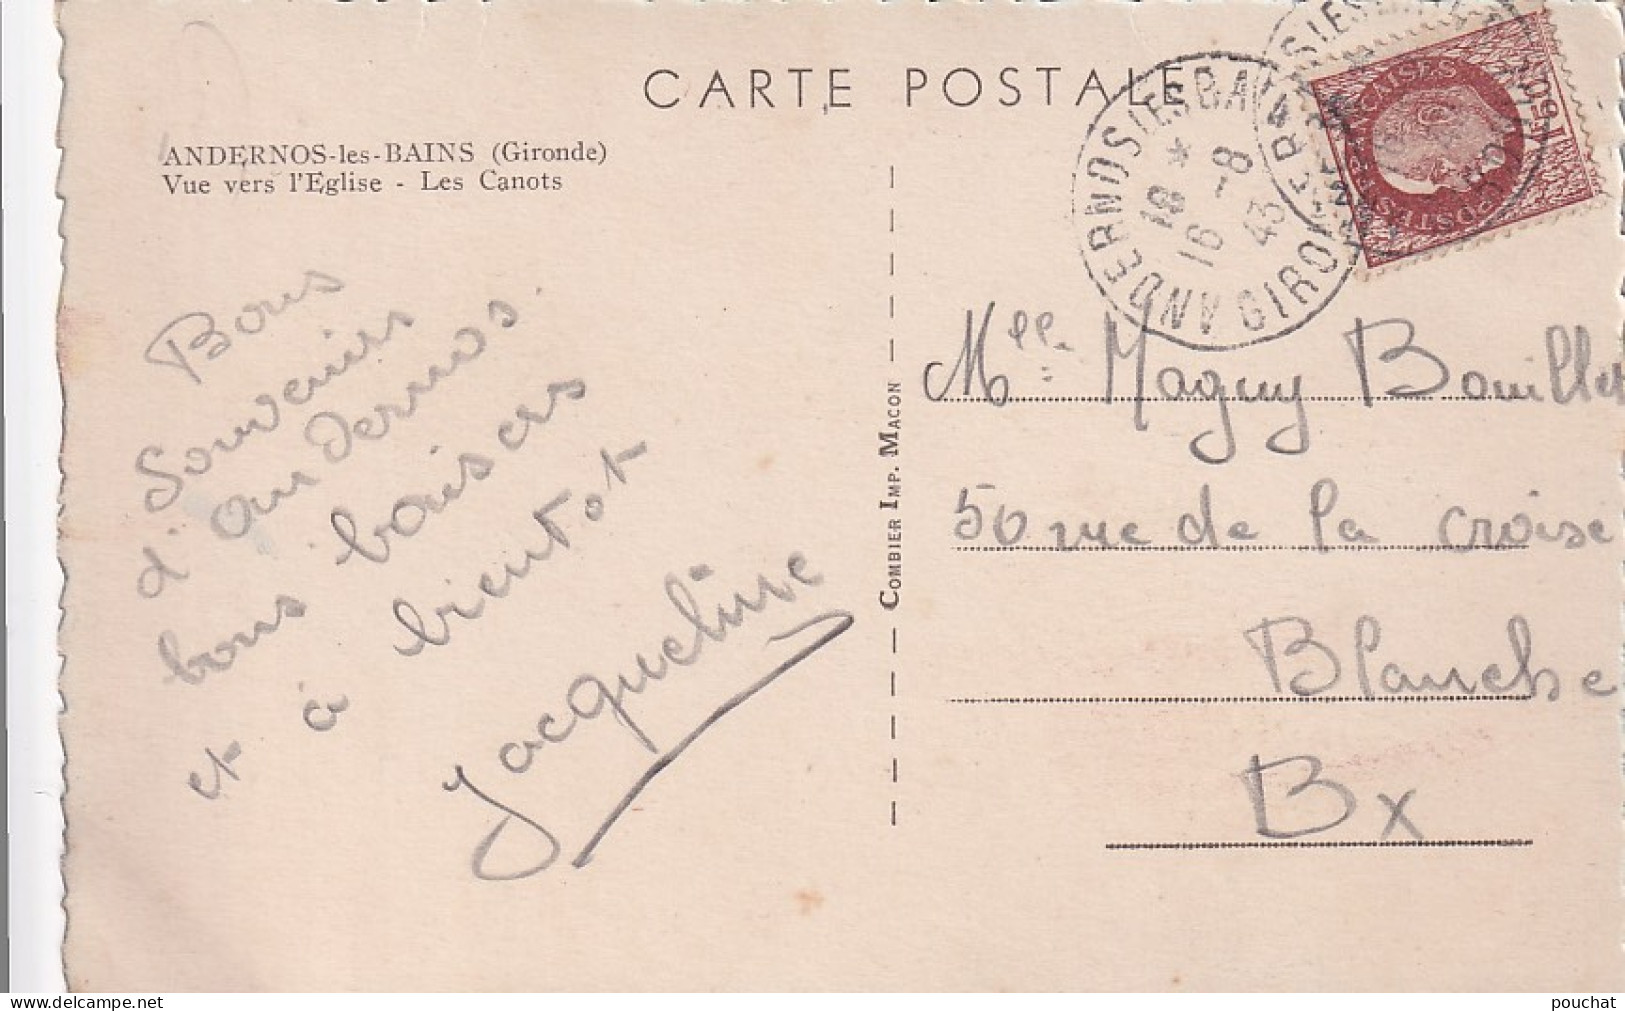 CARTE POSTALE
ANDERNOS-les-BAINS (Gironde)
Vue vers l'Eglise - Les Canots
Bons
Souvenirs
d'andernos.
bons baisers
et à bientot
Jacqueline
COMBIER IMP. MACON
ANDERNOS LES BAINS
GIRONDE
18 *
16 -8
43
POSTES FRANÇAISES
1F50
Mlle Maguy Bouillet
50 rue de la croise
Blanche
Bx
pouchat